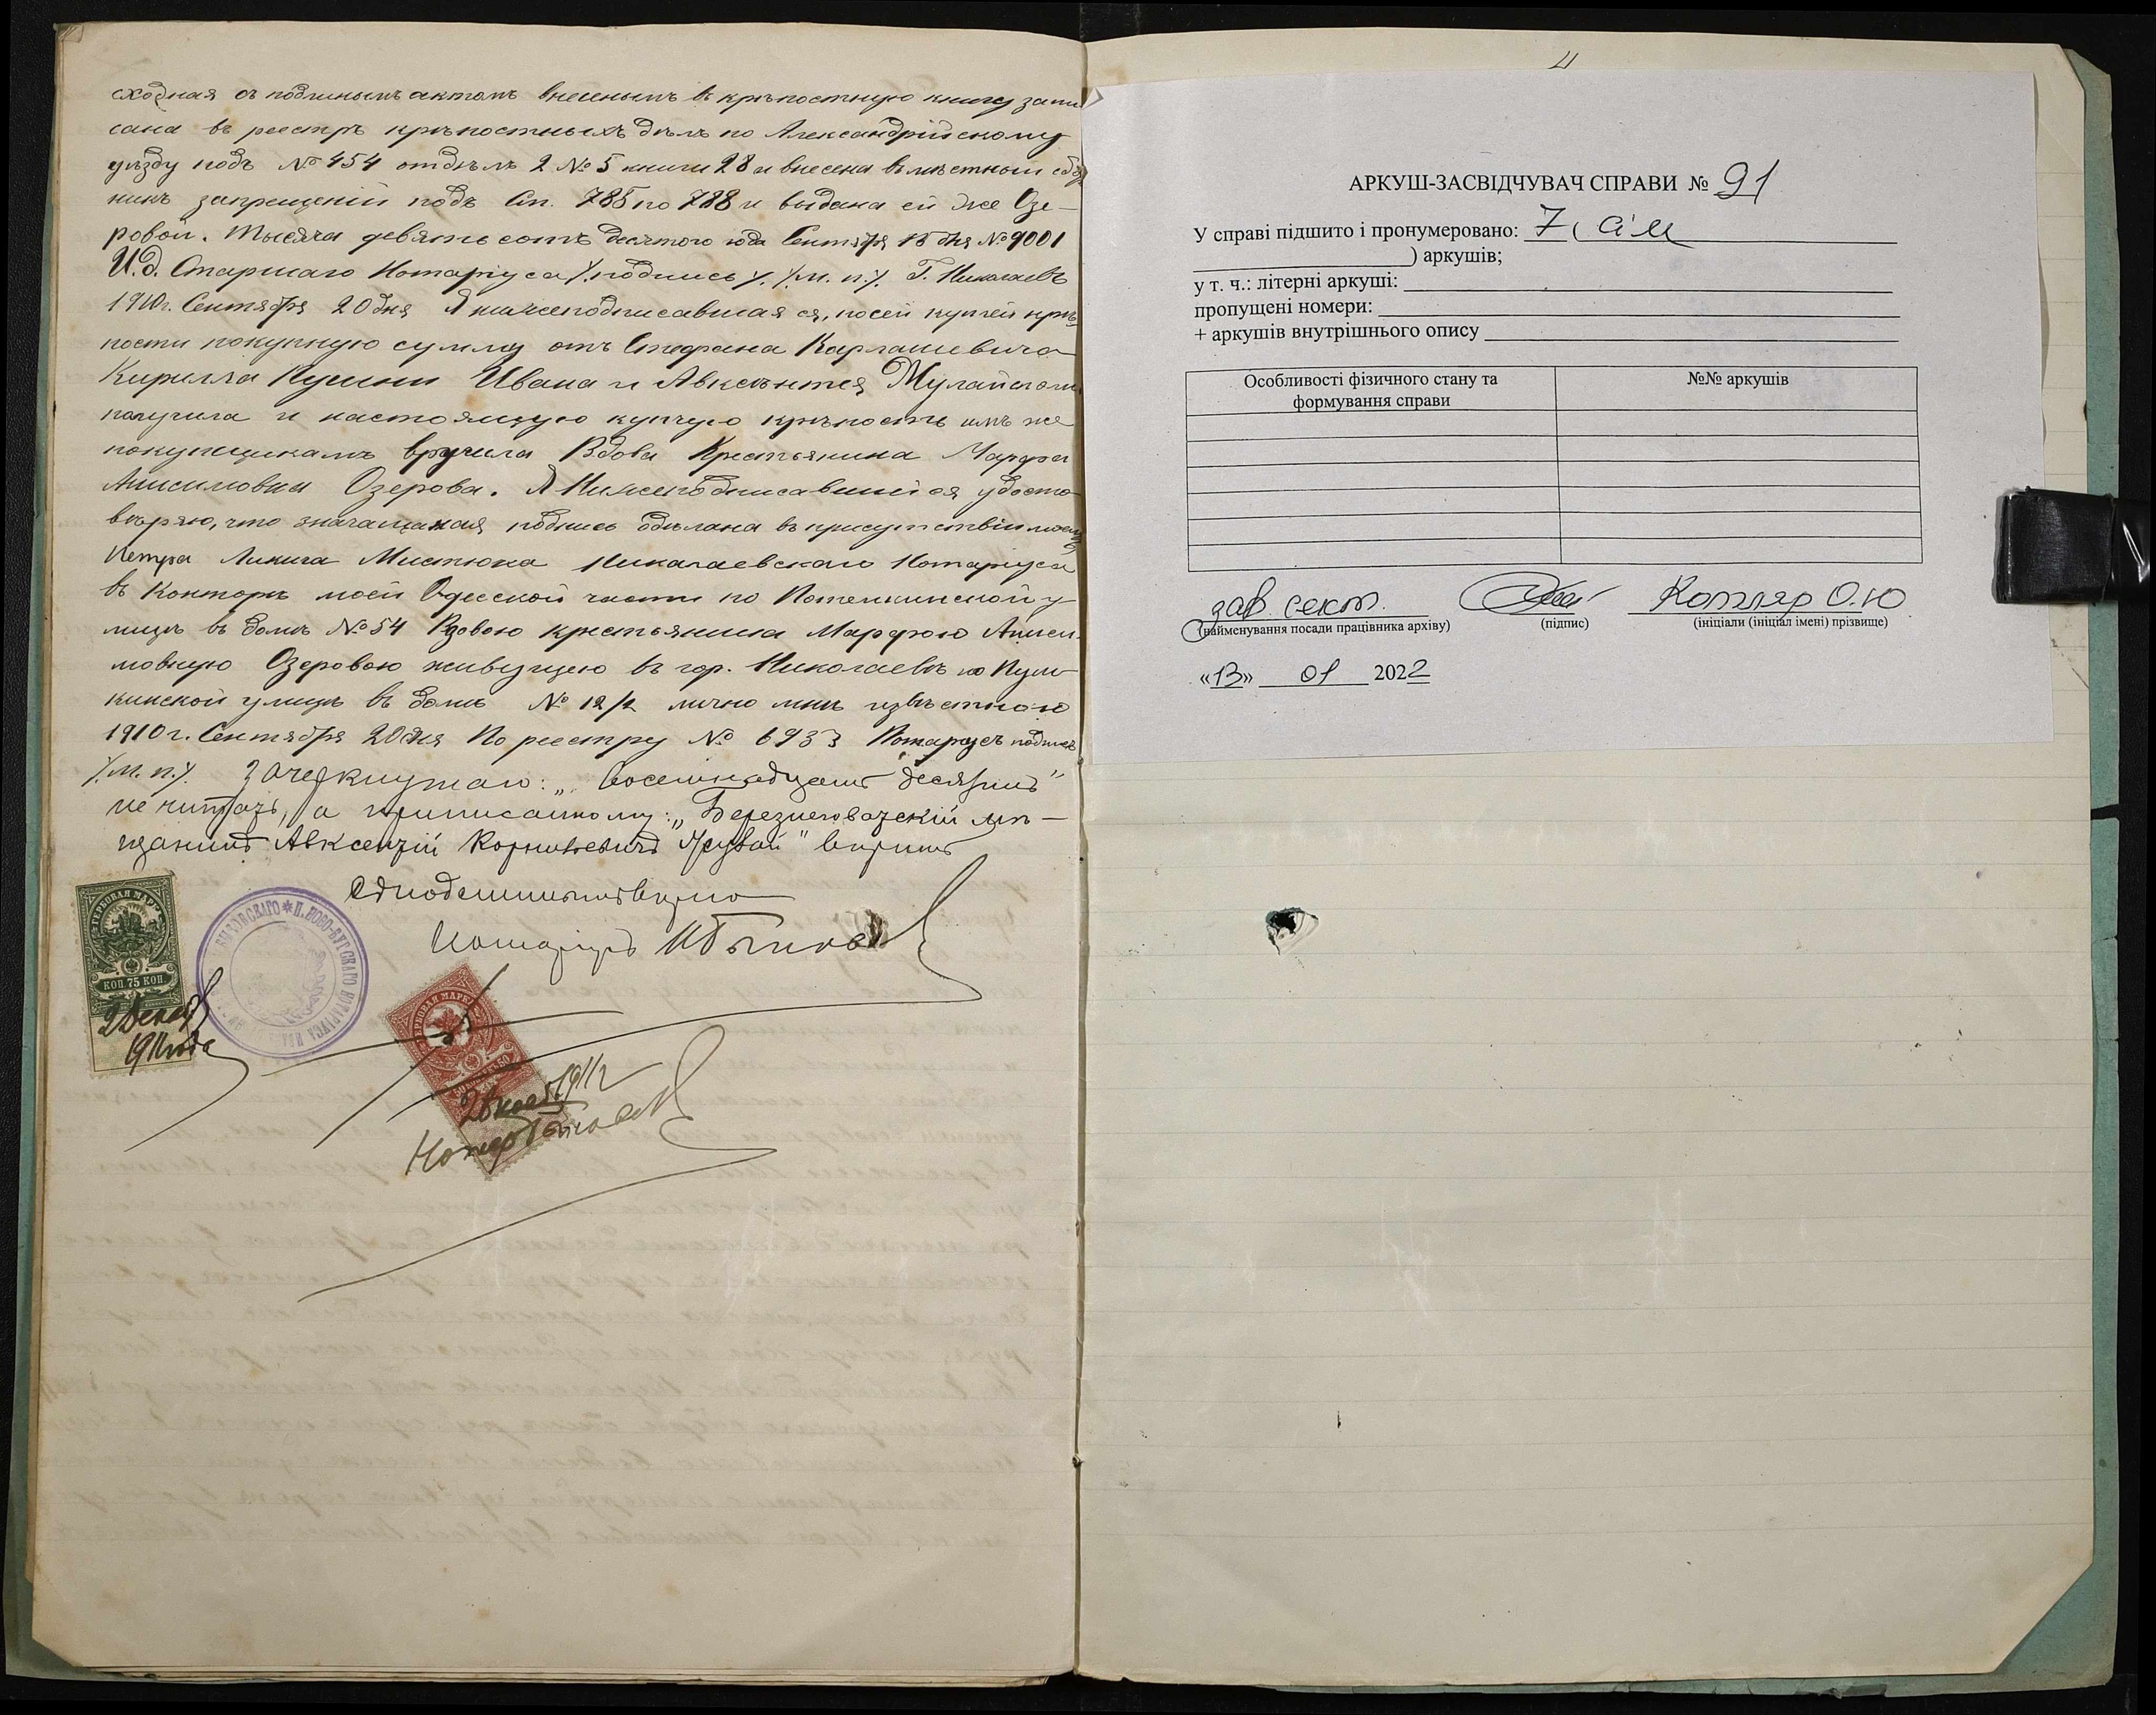 сходная съ подлинымъ актомъ внесенымъ въ крѣпостную книгу запи
сана въ реестръ крѣпостныхъ дѣлъ по Александрійскому
уѣзду подъ № 454 отдѣлъ 2 № 5 книги 28 и внесена въ мѣстный сбор
никъ запрещеній подъ Сп. 785 по 788 и выдана ей же Озе-
ровой. Тысяча девятьсотъ десятого года Сентября 15 дня № 9001
И.д. Старшаго Нотаріуса /.подпись/. /.м.п./. Г. Николаевъ
1910г. Сентября 20 дня Я нижеподписавшая ся, по сей купчей крѣ
пости покупную сумму отъ Стефана Карташевича
Кирилла Кусини Ивана и Авксентія
получила и настоящую купчую крѣпость имъ же
покупщикамъ вручила Вдова Крестьянина Марфа
Анисимовна Озерова. Я Нижеподписавшійся удосто-
вѣряю, что значащаяся подпись сдѣлана въ присутствіи моемъ
Петра Мистюка Николаевскаго Нотаріуса
въ Конторѣ моей Одесской части по Потемкинской у
лицѣ въ домѣ № 54 Вдовою крестьянина Марфою Аниси-
мовную Озеровою живущею въ гор. Николаевѣ по Пуш
кинской улицѣ въ домѣ № 12/2 лично мнѣ извѣстною
1910 г. Сентября 20 дня По реестру № 6933 Нотаріусъ подпись
/.м.п./. Зачеркнутаго: „восемнадцать десятинъ"
не читать, а приписанному: „Березнеговатскій мѣ-
щанинъ Авксентій Корнѣевичъ " вѣрить
Нотаріусъ И Быков
ГЕРБОВАЯ МАРКА
КОП 75 КОП
2 Декаб
1911 года
Н. НОВО-БУГСКАГО НОТАРІУСА
ГЕРБОВАЯ МАРКА
50
26 нояб. 1911 г
Нотар Быков
4
АРКУШ-ЗАСВІДЧУВАЧ СПРАВИ № 91
У справі підшито і пронумеровано: 7 ( сім
) аркушів;
у т. ч.: літерні аркуші:
пропущені номери:
+ аркушів внутрішнього опису
Особливості фізичного стану та формування справи №№ аркушів
зав. сект. Котляр О.Ю
(найменування посади працівника архіву) (підпис) (ініціали (ініціал імені) прізвище)
«13» 01 2022